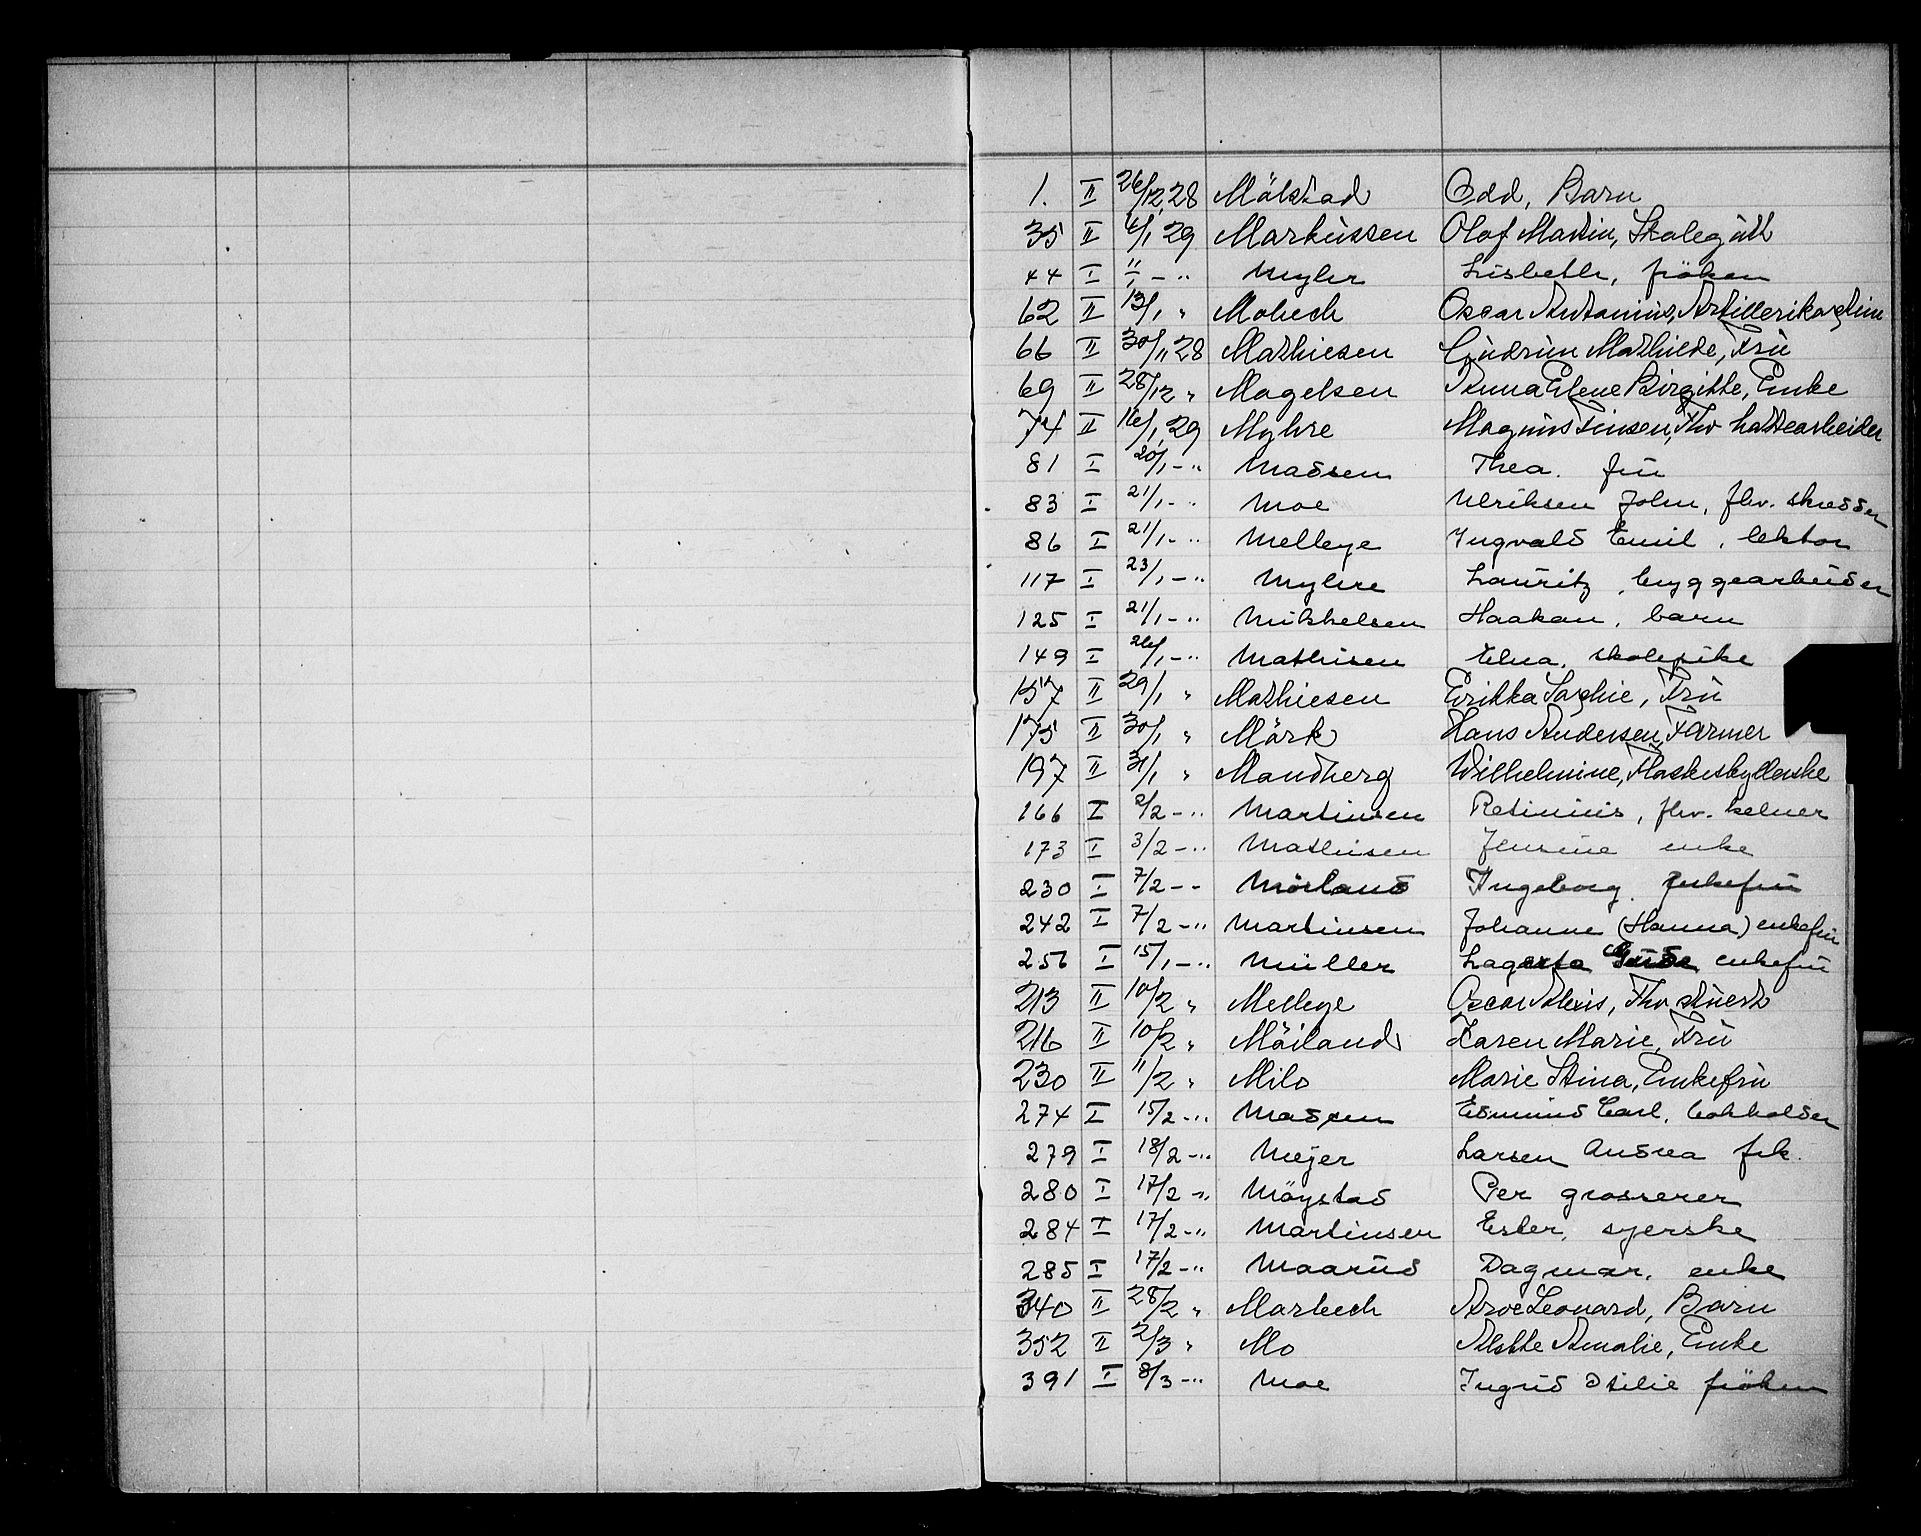 1. II 26/12 28 Mölstad Odd, Barn
35 II 6/1 29 Markussen Olaf Martin, Skolegutt
44 I 11/1 - " Myhr Lisbeth, fröken
62 II 13/1 " Mobech Oscar Antonius, Artillerikaptein
66 II 30/11 28 Mathiesen Gudrun Mathilde, Fru
69 II 28/12 " Magelsen Anna Elene Birgitte, Enke
74 II 16/1 29 Myhre Magnus Jensen, Fhv hattearbeider
81 I 20/1 - " Madsen Thea. fru
83 I 21/1 - " Moe Ulriksen John, fhv. skredder
86 I 21/1 - " Melleye Ingvald Emil, lektor
117 I 23/1 - " Myhre Lauritz, bryggearbeider
125 I 21/1 - " Mikkelsen Haakon, barn
149 I 26/1 - " Mathisen Elna, skolepike
157 II 29/1 " Mathiesen Erikka Sophie, Fru
175 II 30/1 " Mörk Hans Andersen, Farmer
197 II 31/1 " Mandberg Wilhelmine, Flaskeskyllerske
166 I 2/2 - " Martinsen Retinius, fhv. kelner
173 I 3/2 - " Mathisen Jensine enke
230 I 7/2 - - Mörland Ingeborg. Enkefru
242 I 7/2 - " Martinsen Johanne (Hanna) enkefru
256 I 15/1 - " Müller Lagerta Gude enkefru
213 II 10/2 " Melleye Oscar Alexis, Fhv stuert
216 II 10/2 " Möiland Karen Marie, Fru
230 II 11/2 " Milo Marie Stina, Enkefru
274 I 15/2 - " Madsen Edmund Carl, bokholder
279 I 18/2 - " Mejer Larsen Andrea frk.
280 I 17/2 - " Möystad Per grosserer
284 I 17/2 - " Martinsen Ester, syerske
285 I 17/2 - " Maarud Dagmar, enke
340 II 28/2 " Marbech Arve Leonard, Barn
352 II 2/3 " Mo Alette Amalie, Enke
391 I 8/3 - " Moe Ingrid Otilie fröken